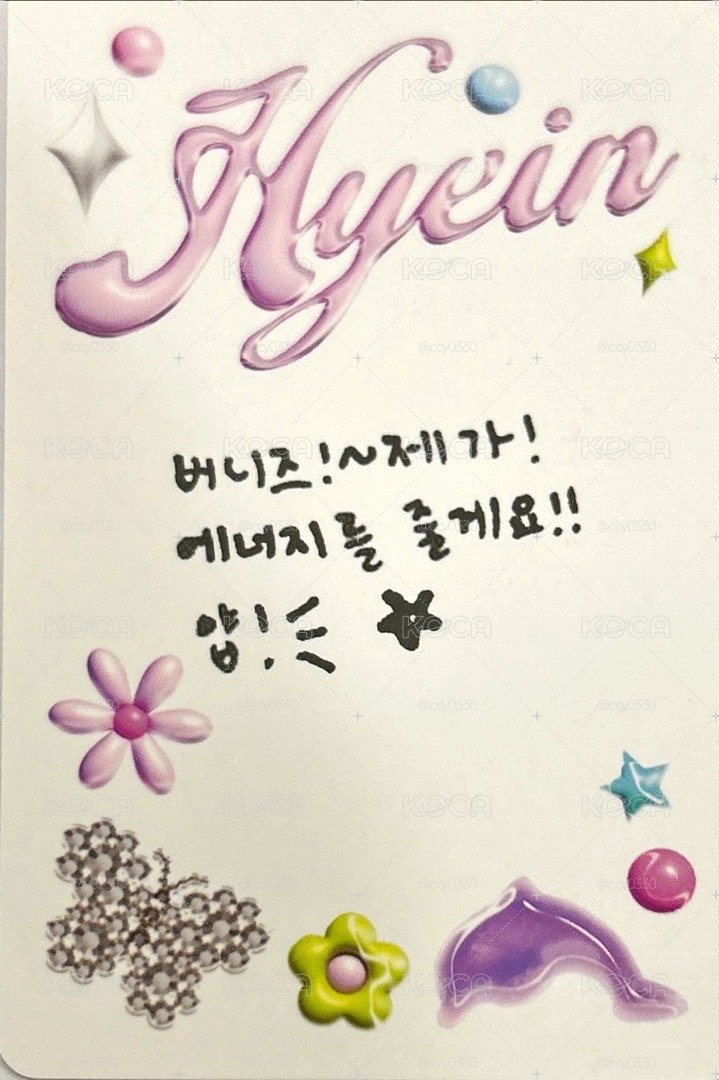 Hyein
버니즈!~제가!
에너지를 줄게요!!
얍!
KOCA
@coy0330